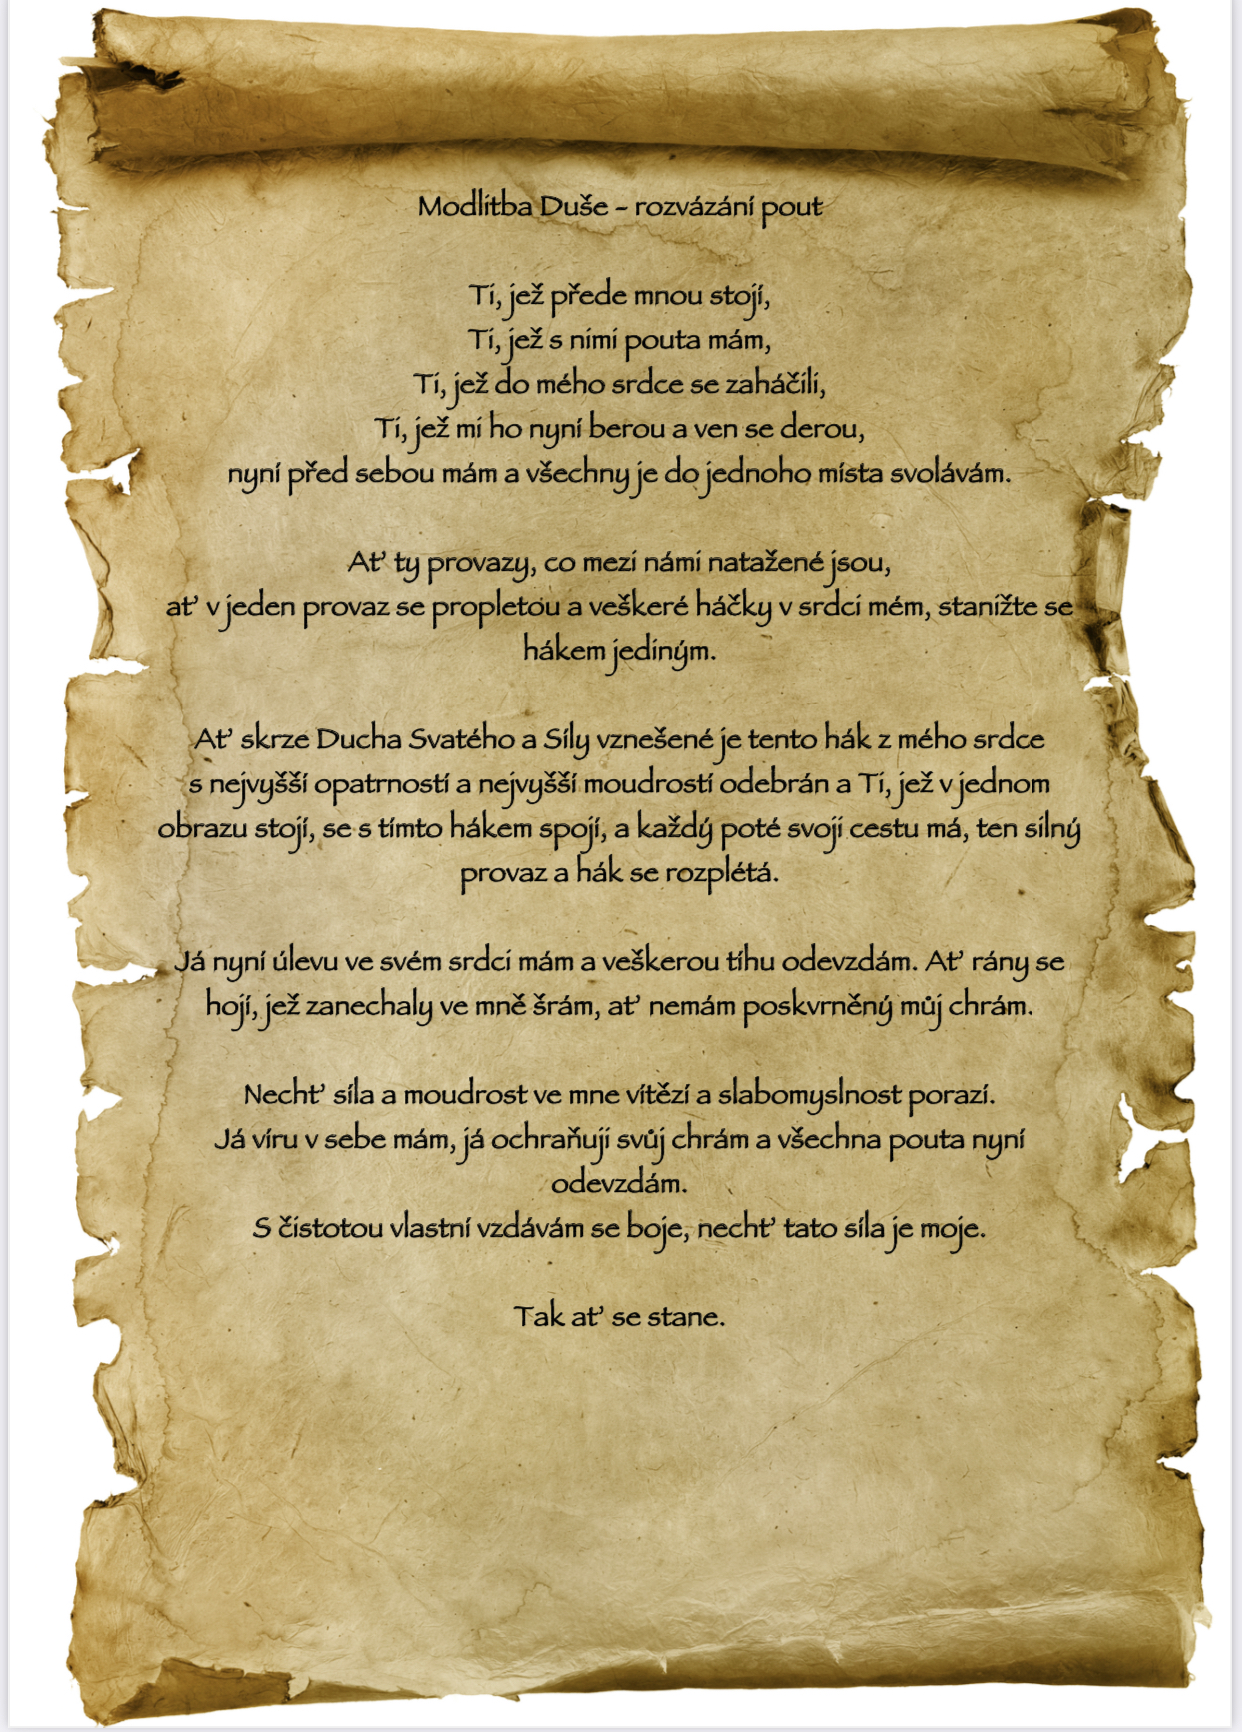 Modlitba Duše – rozvázání pout
Ti, jež přede mnou stojí,
Ti, jež s nimi pouta mám,
Ti, jež do mého srdce se zaháčili,
Ti, jež mi ho nyní berou a ven se derou,
nyní před sebou mám a všechny je do jednoho místa svolávám.
Ať ty provazy, co mezi námi natažené jsou,
ať v jeden provaz se propletou a veškeré háčky v srdci mém, stanížte se
hákem jediným.
Ať skrze Ducha Svatého a Síly vznešené je tento hák z mého srdce
s nejvyšší opatrností a nejvyšší moudrostí odebrán a Ti, jež v jednom
obrazu stojí, se s tímto hákem spojí, a každý poté svojí cestu má, ten silný
provaz a hák se rozplétá.
Já nyní úlevu ve svém srdci mám a veškerou tíhu odevzdám. Ať rány se
hojí, jež zanechaly ve mně šrám, ať nemám poskvrněný můj chrám.
Nechť síla a moudrost ve mne vítězí a slabomyslnost porazí.
Já víru v sebe mám, já ochraňuji svůj chrám a všechna pouta nyní
odevzdám.
S čistotou vlastní vzdávám se boje, nechť tato síla je moje.
Tak ať se stane.